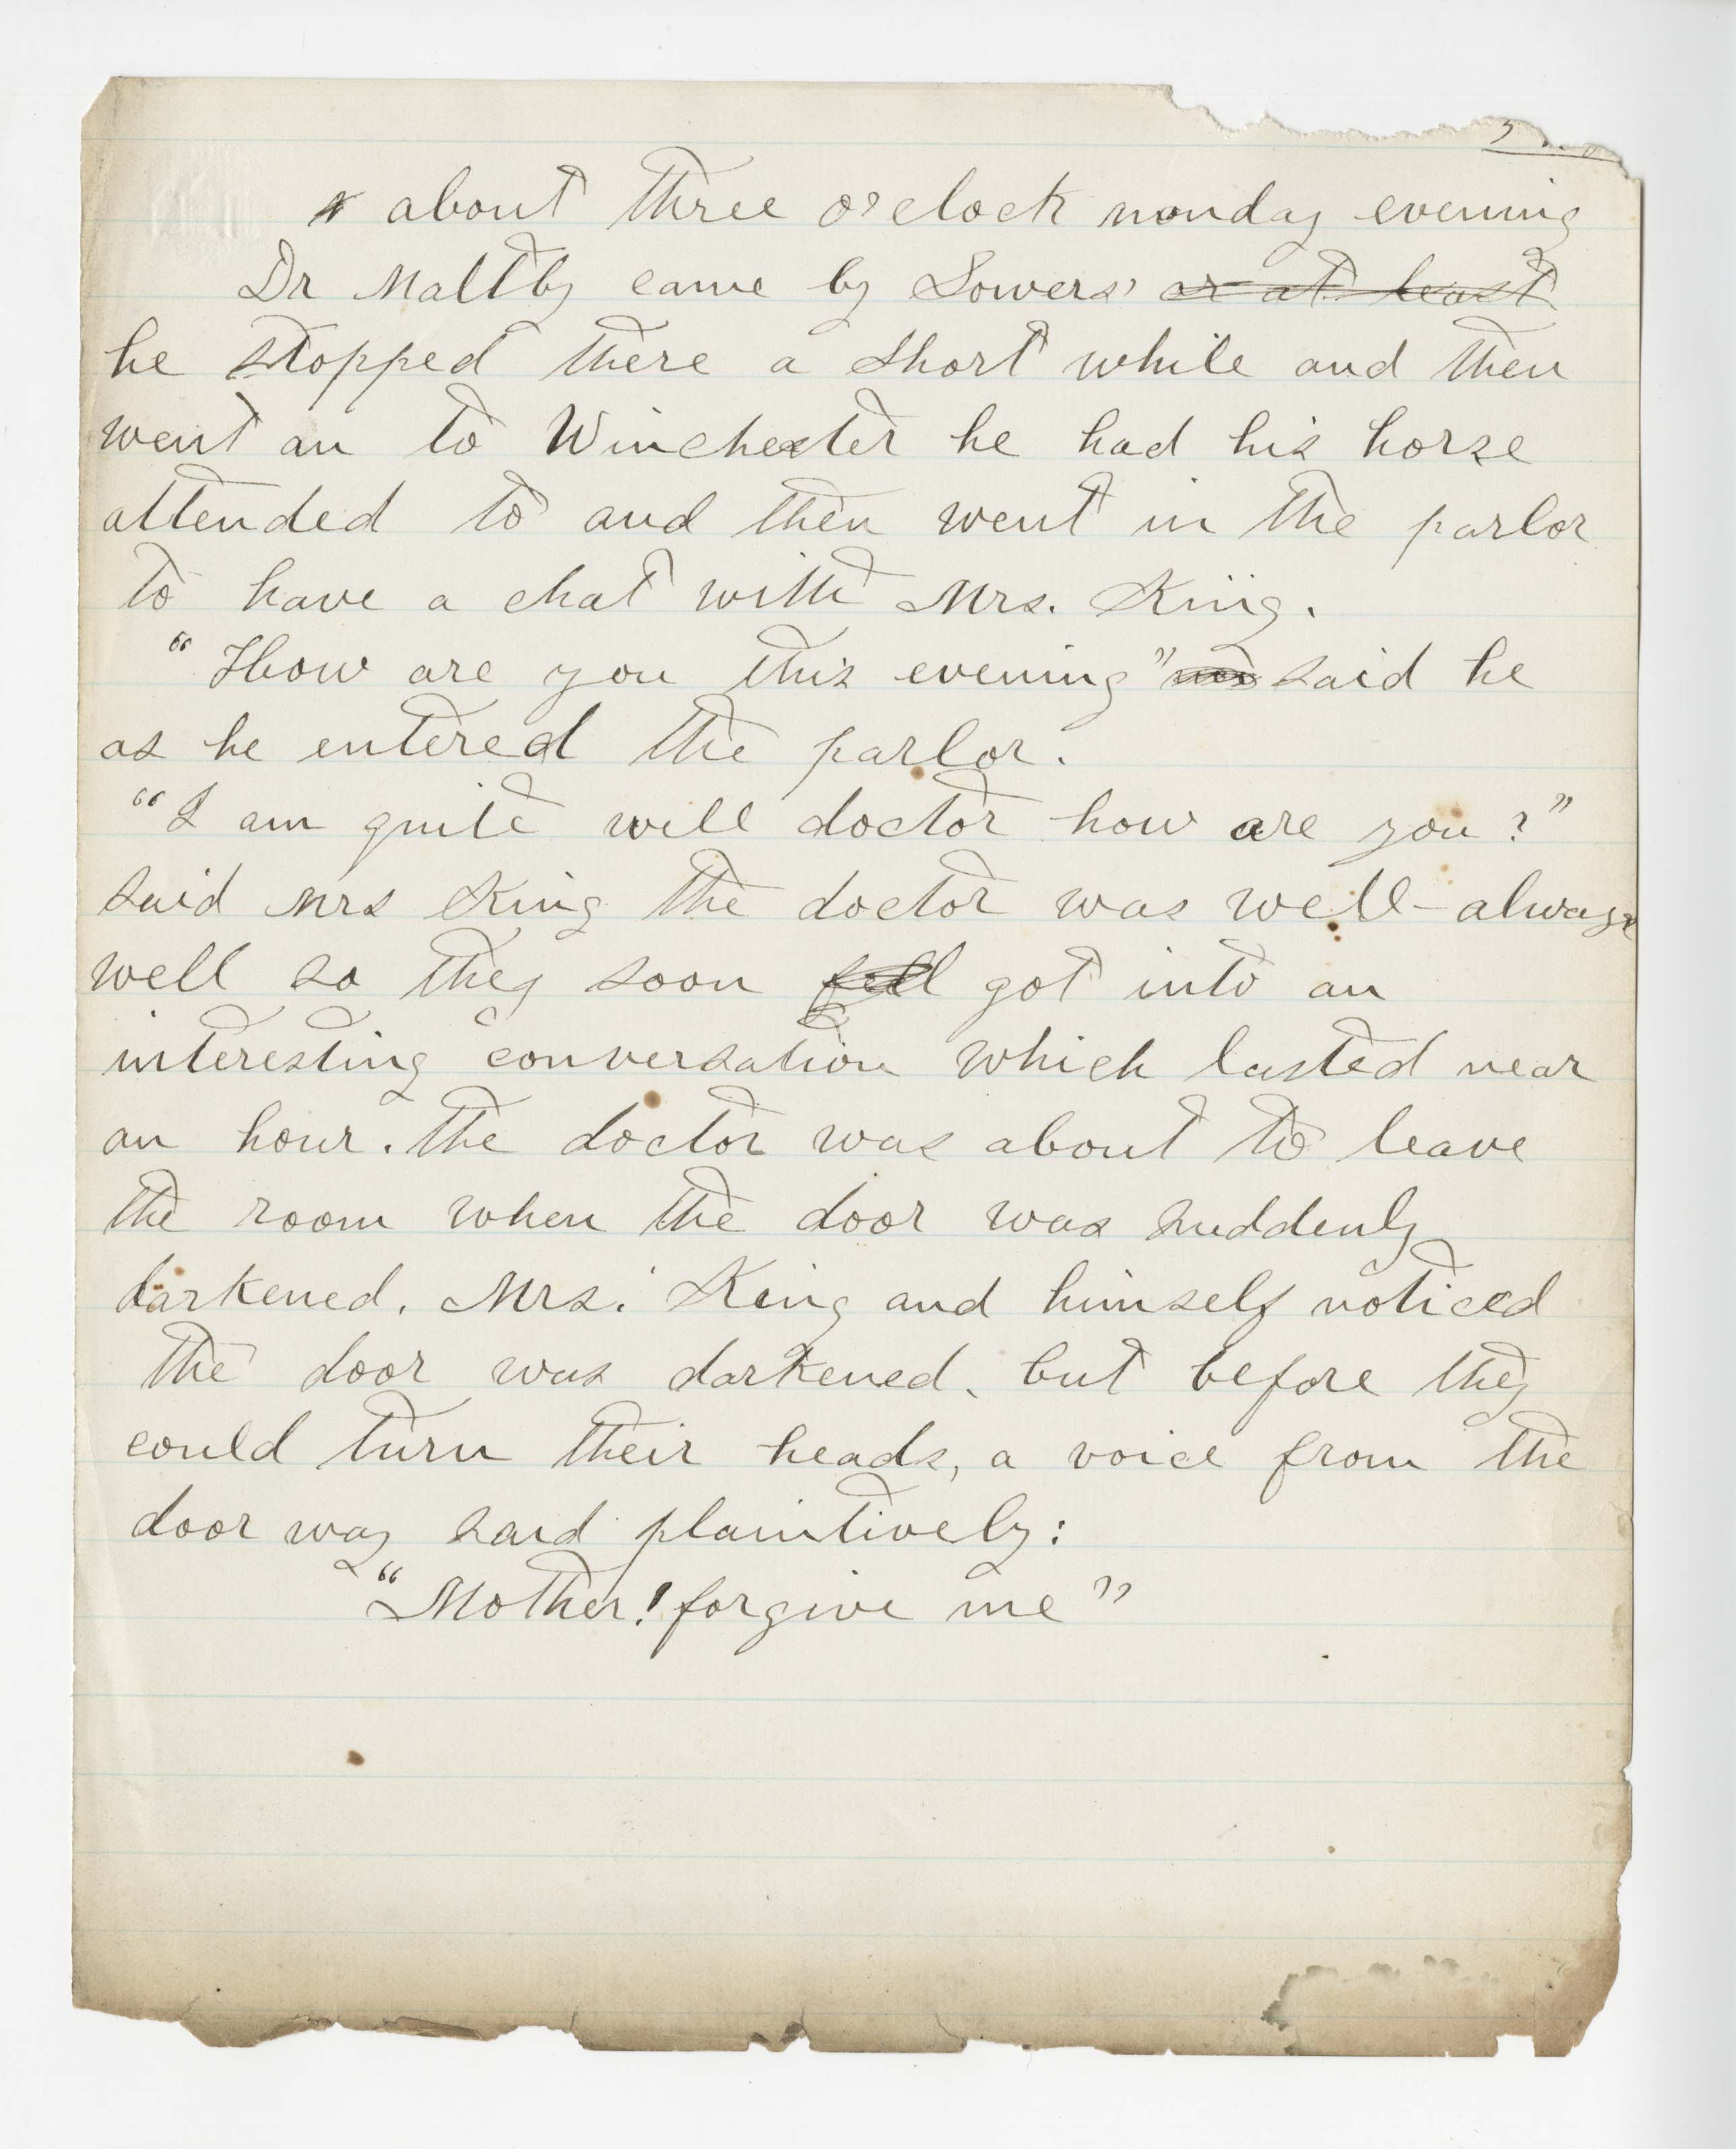 about three o'clock monday evening
Dr Maltby came by Sowers' or at least
he stopped there a short while and then
went an to Winchester he had his horse
attended to and then went in the parlor
to have a chat with Mrs. King.
"How are you this evening" said he
as he entered the parlor.
"I am quite well doctor how are you?"
said mrs King the doctor was well - always
well so they soon fell got into an
interesting conversation which lasted near
an hour. The doctor was about to leave
the room when the door was suddenly
darkened. Mrs. King and himself noticed
the door was darkened, but before they
could turn their heads, a voice from the
door way said plaintively:
"Mother! forgive me"